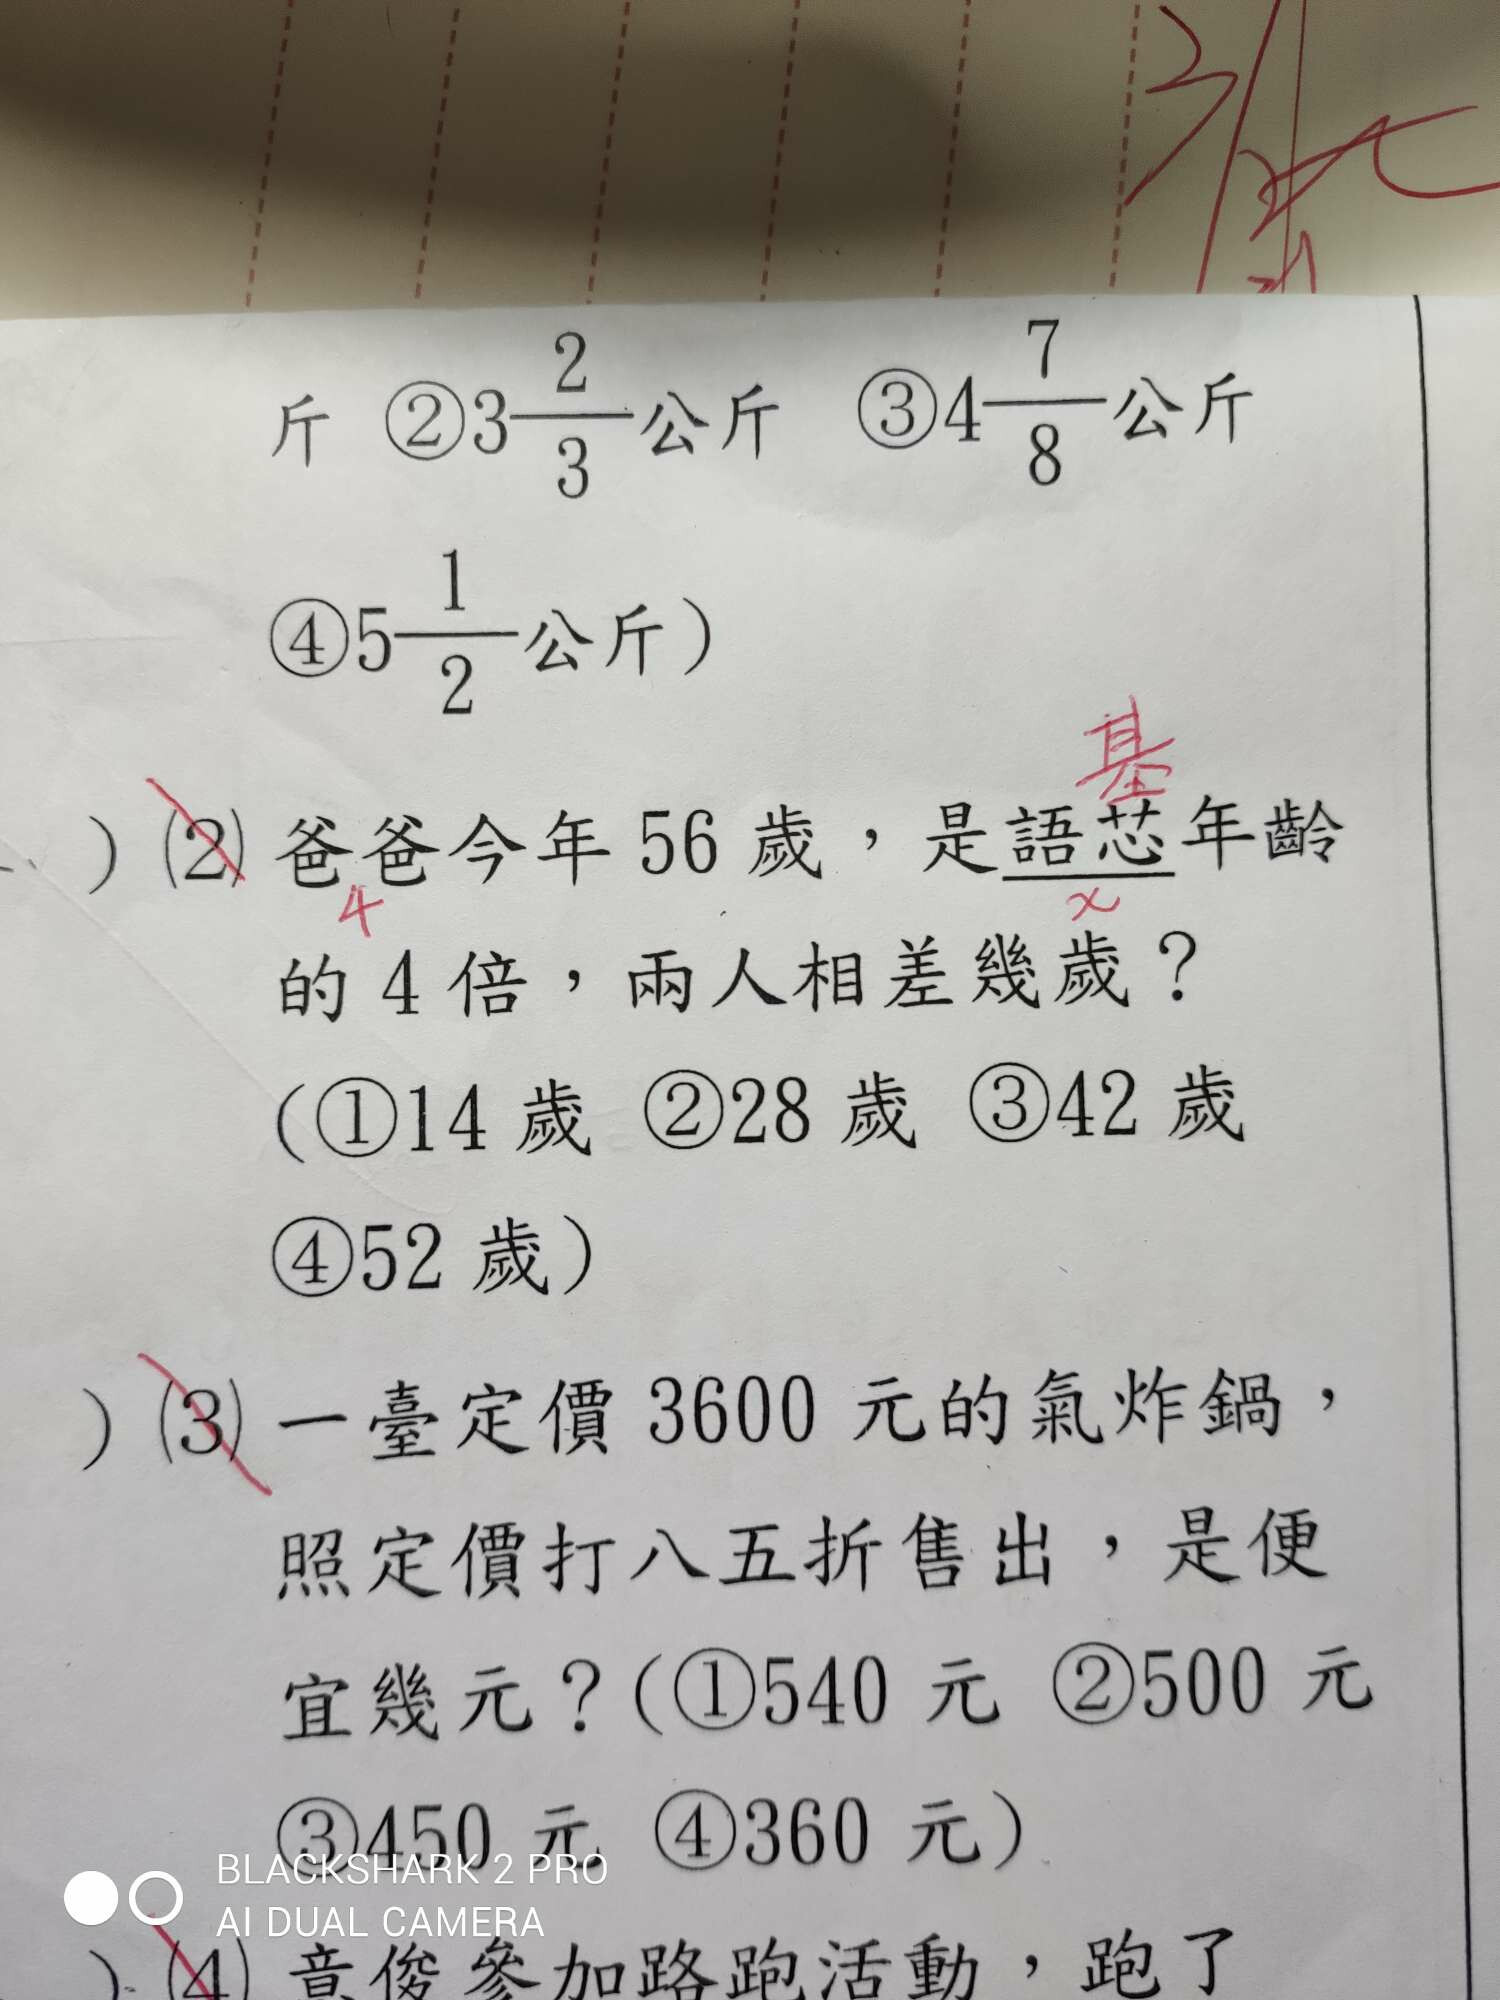 斤 ②3 2/3 公斤 ③4 7/8 公斤
④5 1/2 公斤)
基
) (2) 爸爸今年 56 歲，是語芯年齡
4 x
的 4 倍，兩人相差幾歲？
(①14 歲 ②28 歲 ③42 歲
④52 歲)
) (3) 一臺定價 3600 元的氣炸鍋，
照定價打八五折售出，是便
宜幾元？(①540 元 ②500 元
③450 元 ④360 元)
BLACKSHARK 2 PRO
AI DUAL CAMERA
) (4) 意俊參加路跑活動，跑了